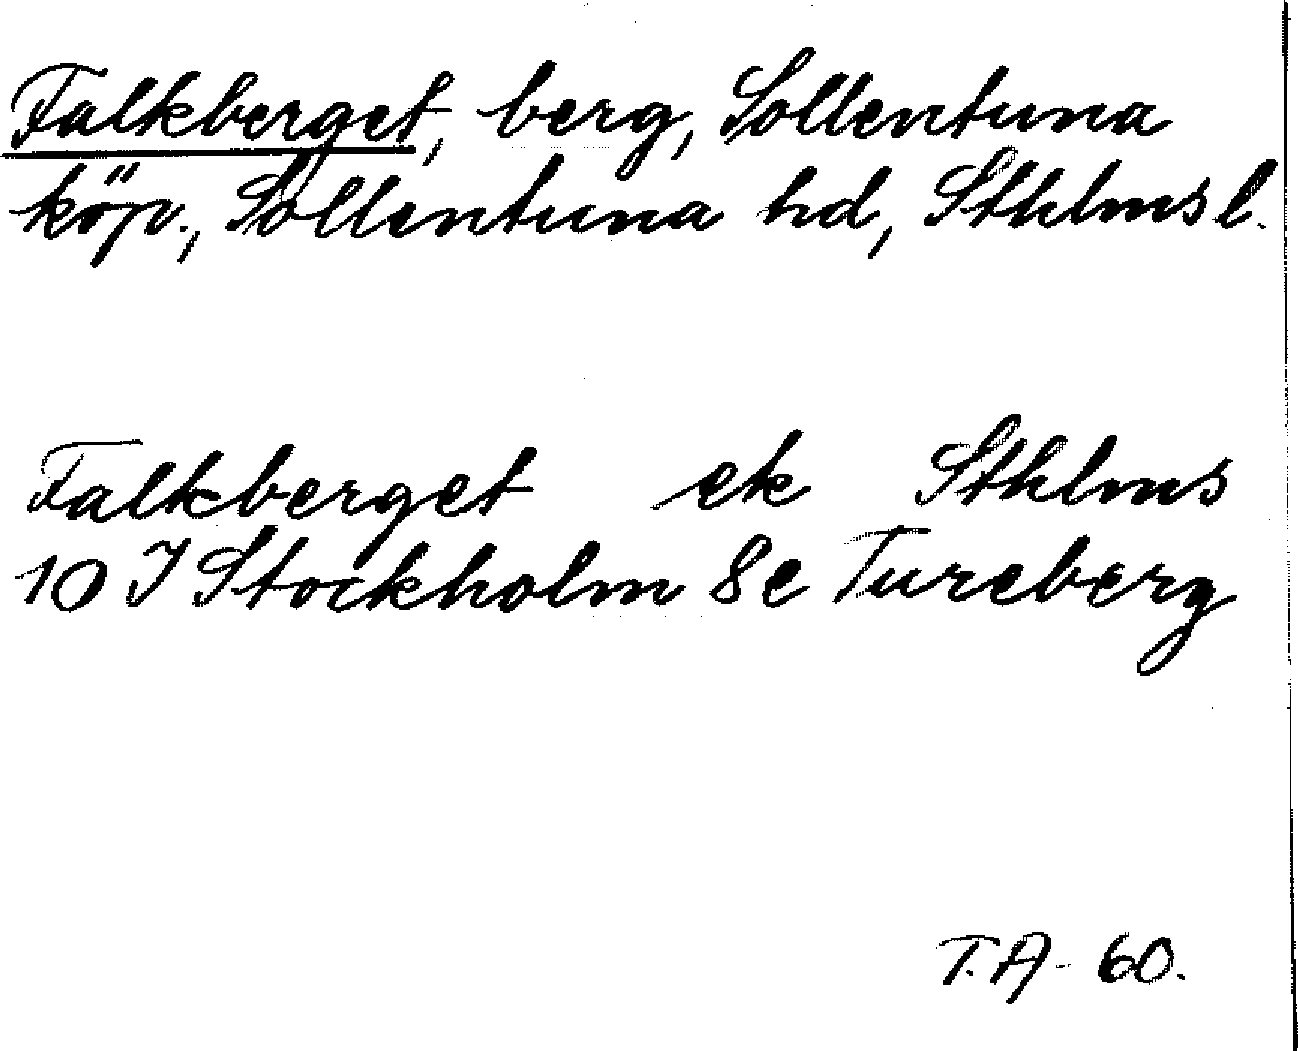 Falkberget, berg, Sollentuna
köp., Sollentuna hd, Sthlms l.
Falkberget ek Sthlms
10 I Stockholm 8e Tureberg
T.A- 60.